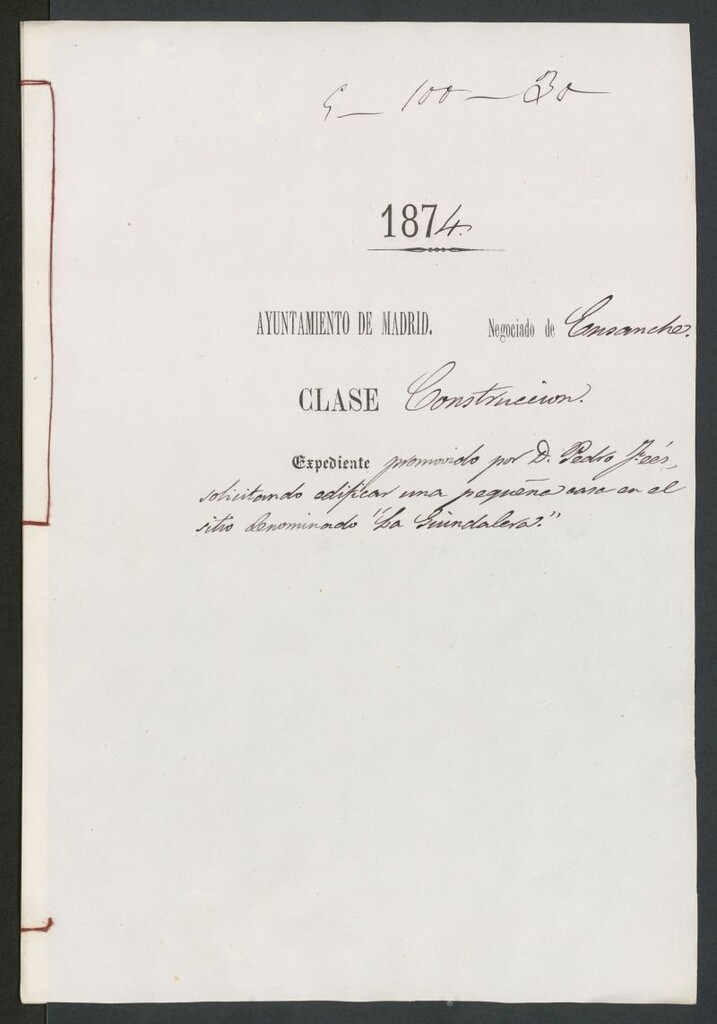 5 - 100 - 30
1874.
AYUNTAMIENTO DE MADRID. Negociado de Ensanche.
CLASE Construccion.
Expediente promovido por D. Pedro
solicitando edificar una pequeña casa en el
sitio denominado "La Guindalera."